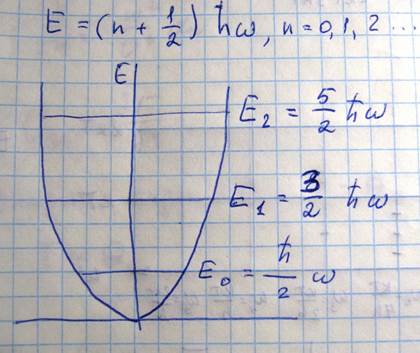 E = (n + 1/2) ħω, n = 0, 1, 2 ...
E
E₂ = 5/2 ħω
E₁ = 3/2 ħω
E₀ = ħ/2 ω